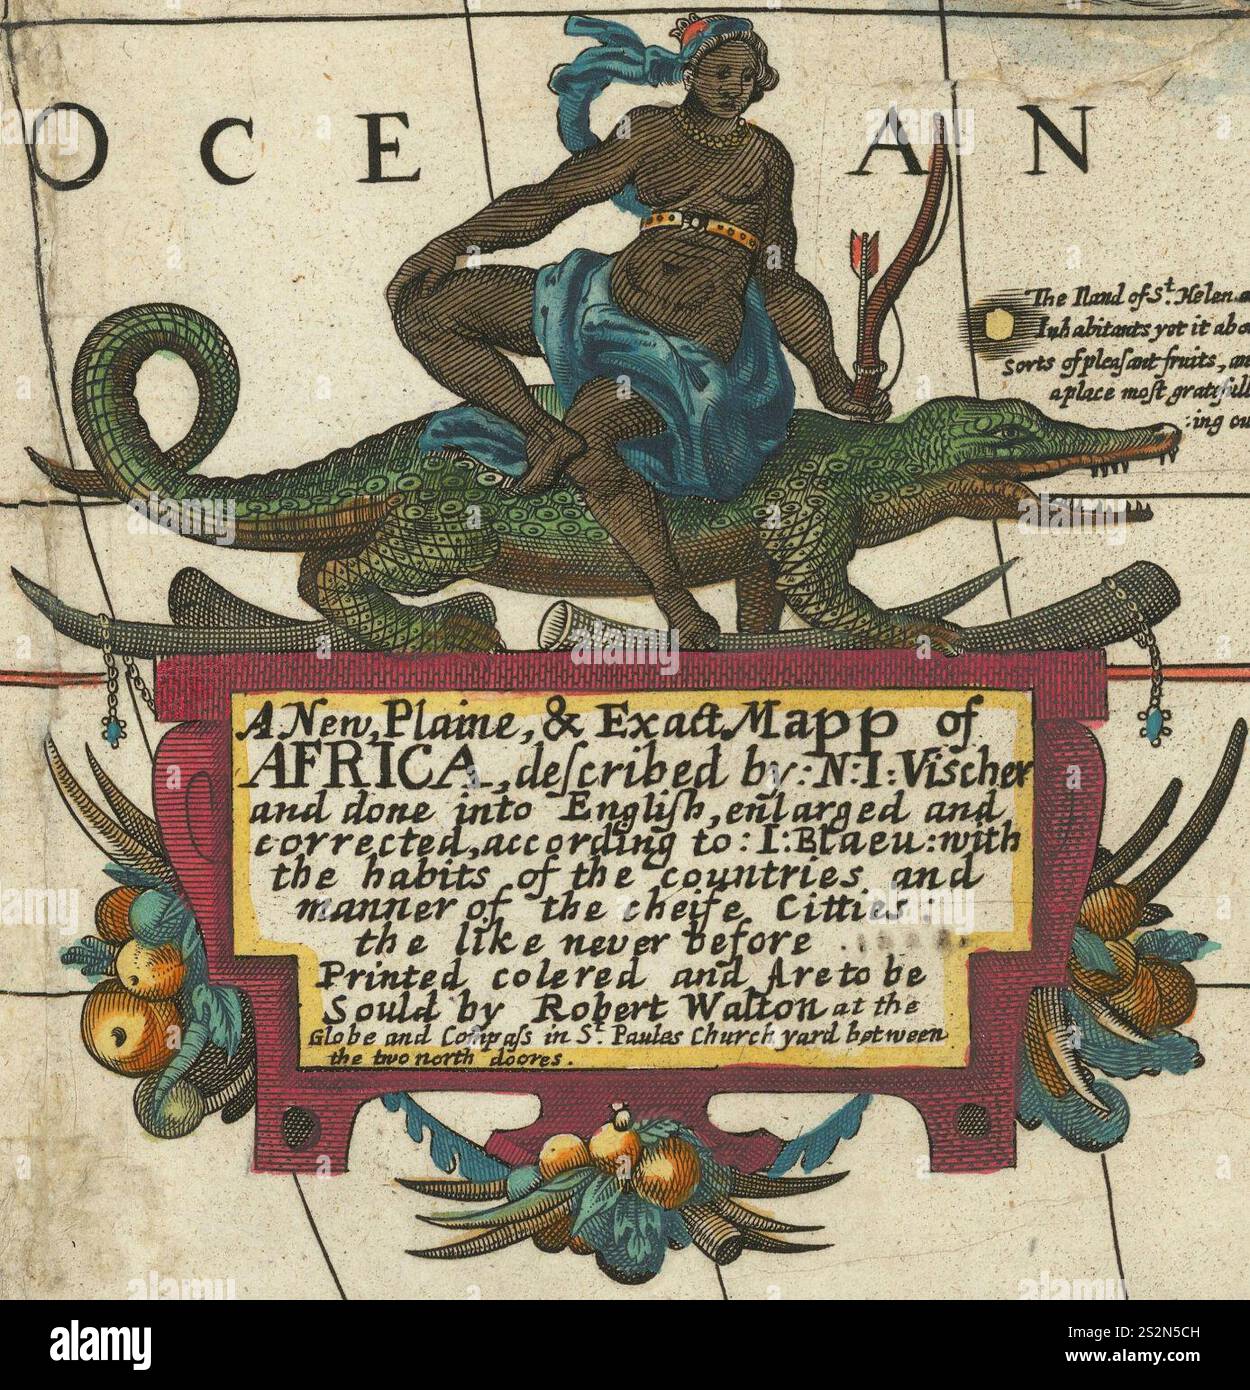 OCEAN
The Iland of St. Helen
Inhabitants yet it abo
Sorts of pleaſant fruits, an
a place moſt gratefull
:ing ou
A New, Plaine, & Exact Mapp of
AFRICA, deſcribed by: N: I: Viſcher
and done into Engliſh, enlarged and
corrected, according to: I: Blaeu: with
the habits of the countries, and
manner of the cheife Citties:
the like never before
Printed colered and Are to be
Sould by Robert Walton at the
Globe and Compaſs in St. Paules Church yard between
the two north doores.
alamy
Image ID: 2S2N5CH
www.alamy.com